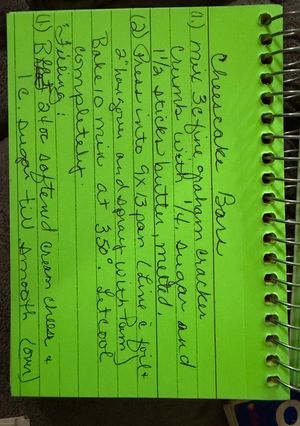 Cheesecake Bars
(1.) Mix 3 c fine graham cracker
crumbs with 1/4 c. sugar and
1 1/2 sticks butter, melted.
(2) Press into 9x13 pan (Line c foil +
2" hangover and spray with Pam)
Bake 10 min at 350°. Let cool
completely.
Filling:
(1) Beat 24 oz softened cream cheese +
1 c. sugar till smooth (over)